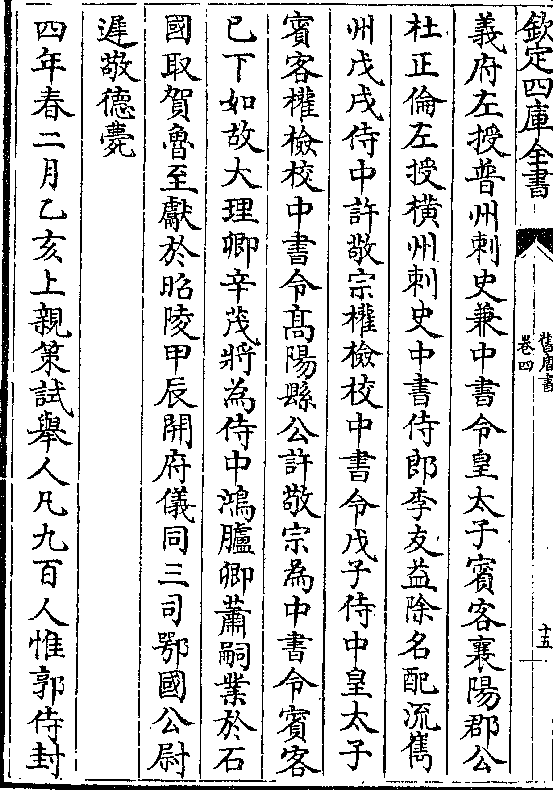 欽定四庫全書
舊唐書
卷四
十五
義府左授普州刺史兼中書令皇太子賓客襄陽郡公
杜正倫左授橫州刺史中書侍郎李友益除名配流雋
州戊戌侍中許敬宗權檢校中書令戊子侍中皇太子
賓客權檢校中書令髙陽縣公許敬宗為中書令賓客
已下如故大理卿辛茂將為侍中鴻臚卿蕭嗣業於石
國取賀魯至獻於昭陵甲辰開府儀同三司鄂國公尉
遲敬德薨
四年春二月乙亥上親策試舉人凡九百人惟郭待封